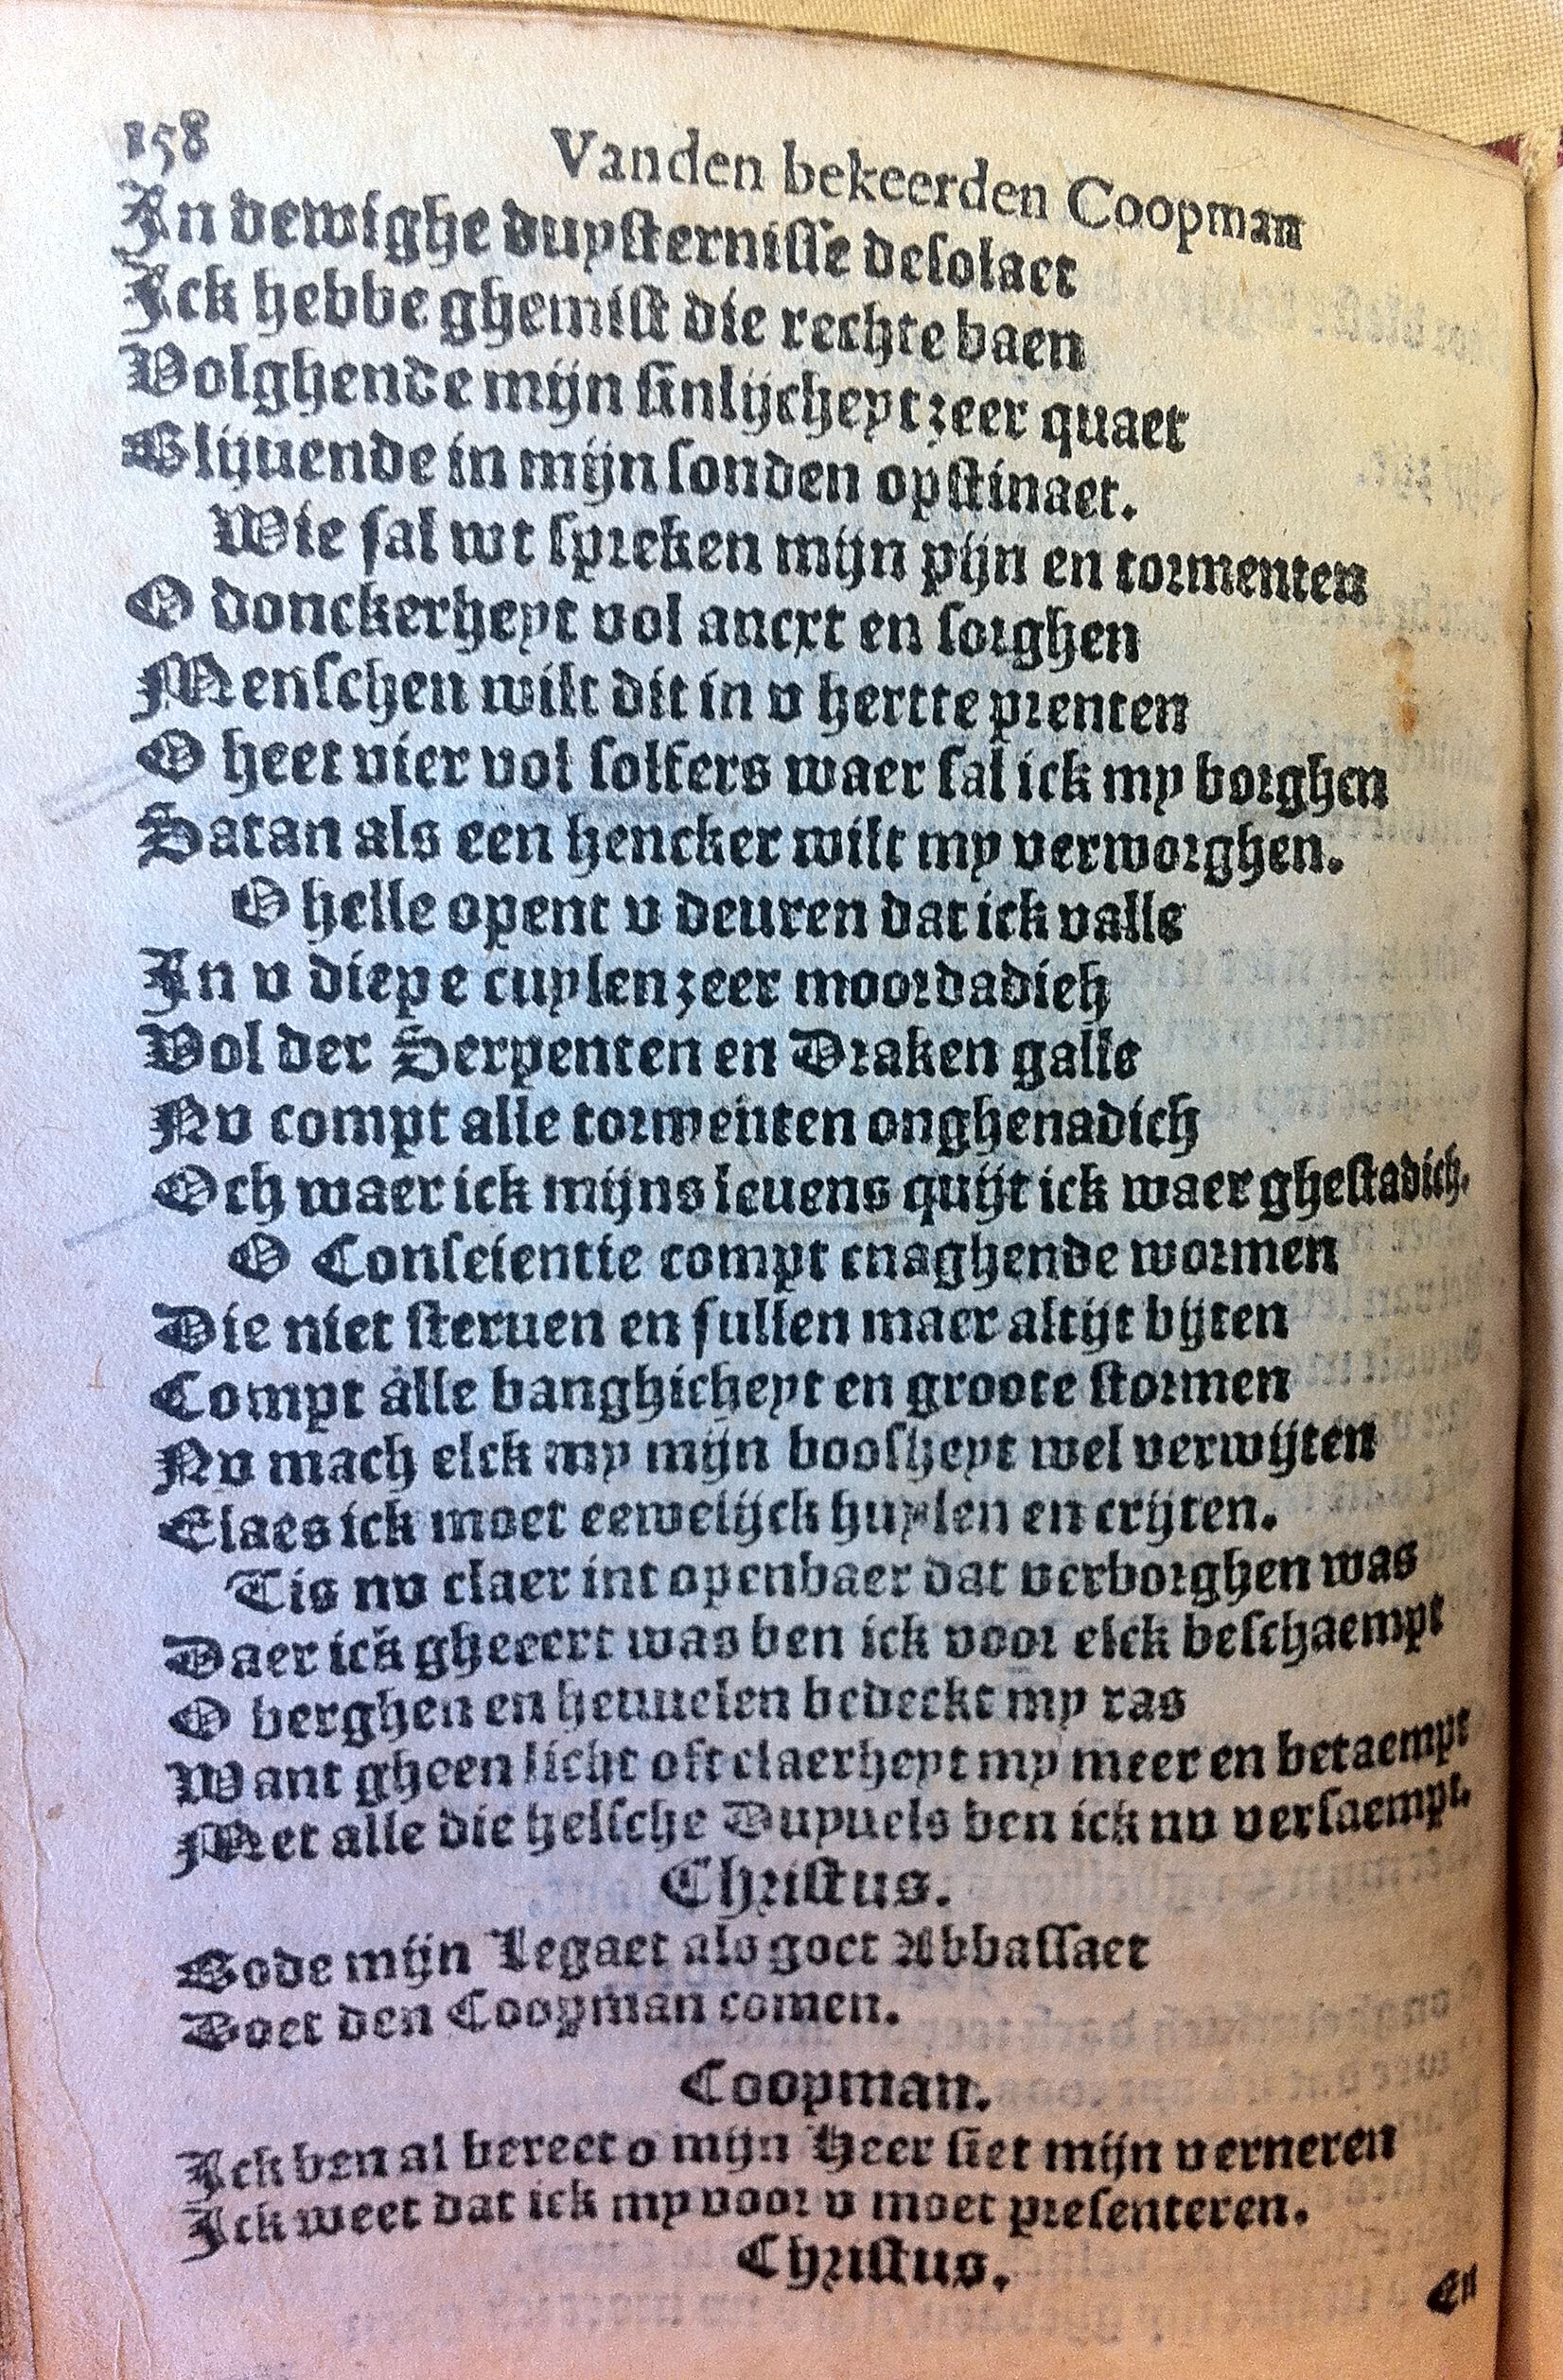 158 Vanden bekeerden Coopman
In dewighe duysternisse desolaet
Ick hebbe ghemist die rechte baen
Volghende mijn sinlijcheyt zeer quaet
Blijuende in mijn sonden opstinaet.
Wie sal wt spreken mijn pijn en tormenten
O donckerheyt vol ancxt en sorghen
Menschen wilt dit in v hertte prenten
O heet vier vol solfers waer sal ick my borghen
Satan als een hencker wilt my verworghen.
O helle opent v deuren dat ick valle
In v diepe cuylen zeer moordadich
Vol der Serpenten en Draken galle
Nv compt alle tormenten onghenadich
Och waer ick mijns leuens quijt ick waer ghestadich.
O Conscientie compt cnaghende wormen
Die niet steruen en sullen maer altijt bijten
Compt alle banghicheyt en groote stormen
Nv mach elck my mijn boosheyt wel verwijten
Elaes ick moet eewelijck huylen en crijten.
Tis nv claer int openbaer dat verborghen was
Daer ick gheeert was ben ick voor elck beschaempt
O berghen en heuuelen bedeckt my ras
Want gheen licht oft claerheyt my meer en betaempt
Met alle die helsche Duyuels ben ick nv versaempt.
Christus.
Bode mijn Legaet als goet Abbassaet
Doet den Coopman comen.
Coopman.
Ick ben al bereet o mijn Heer siet mijn verneren
Ick weet dat ick my voor v moet presenteren.
Christus.
En